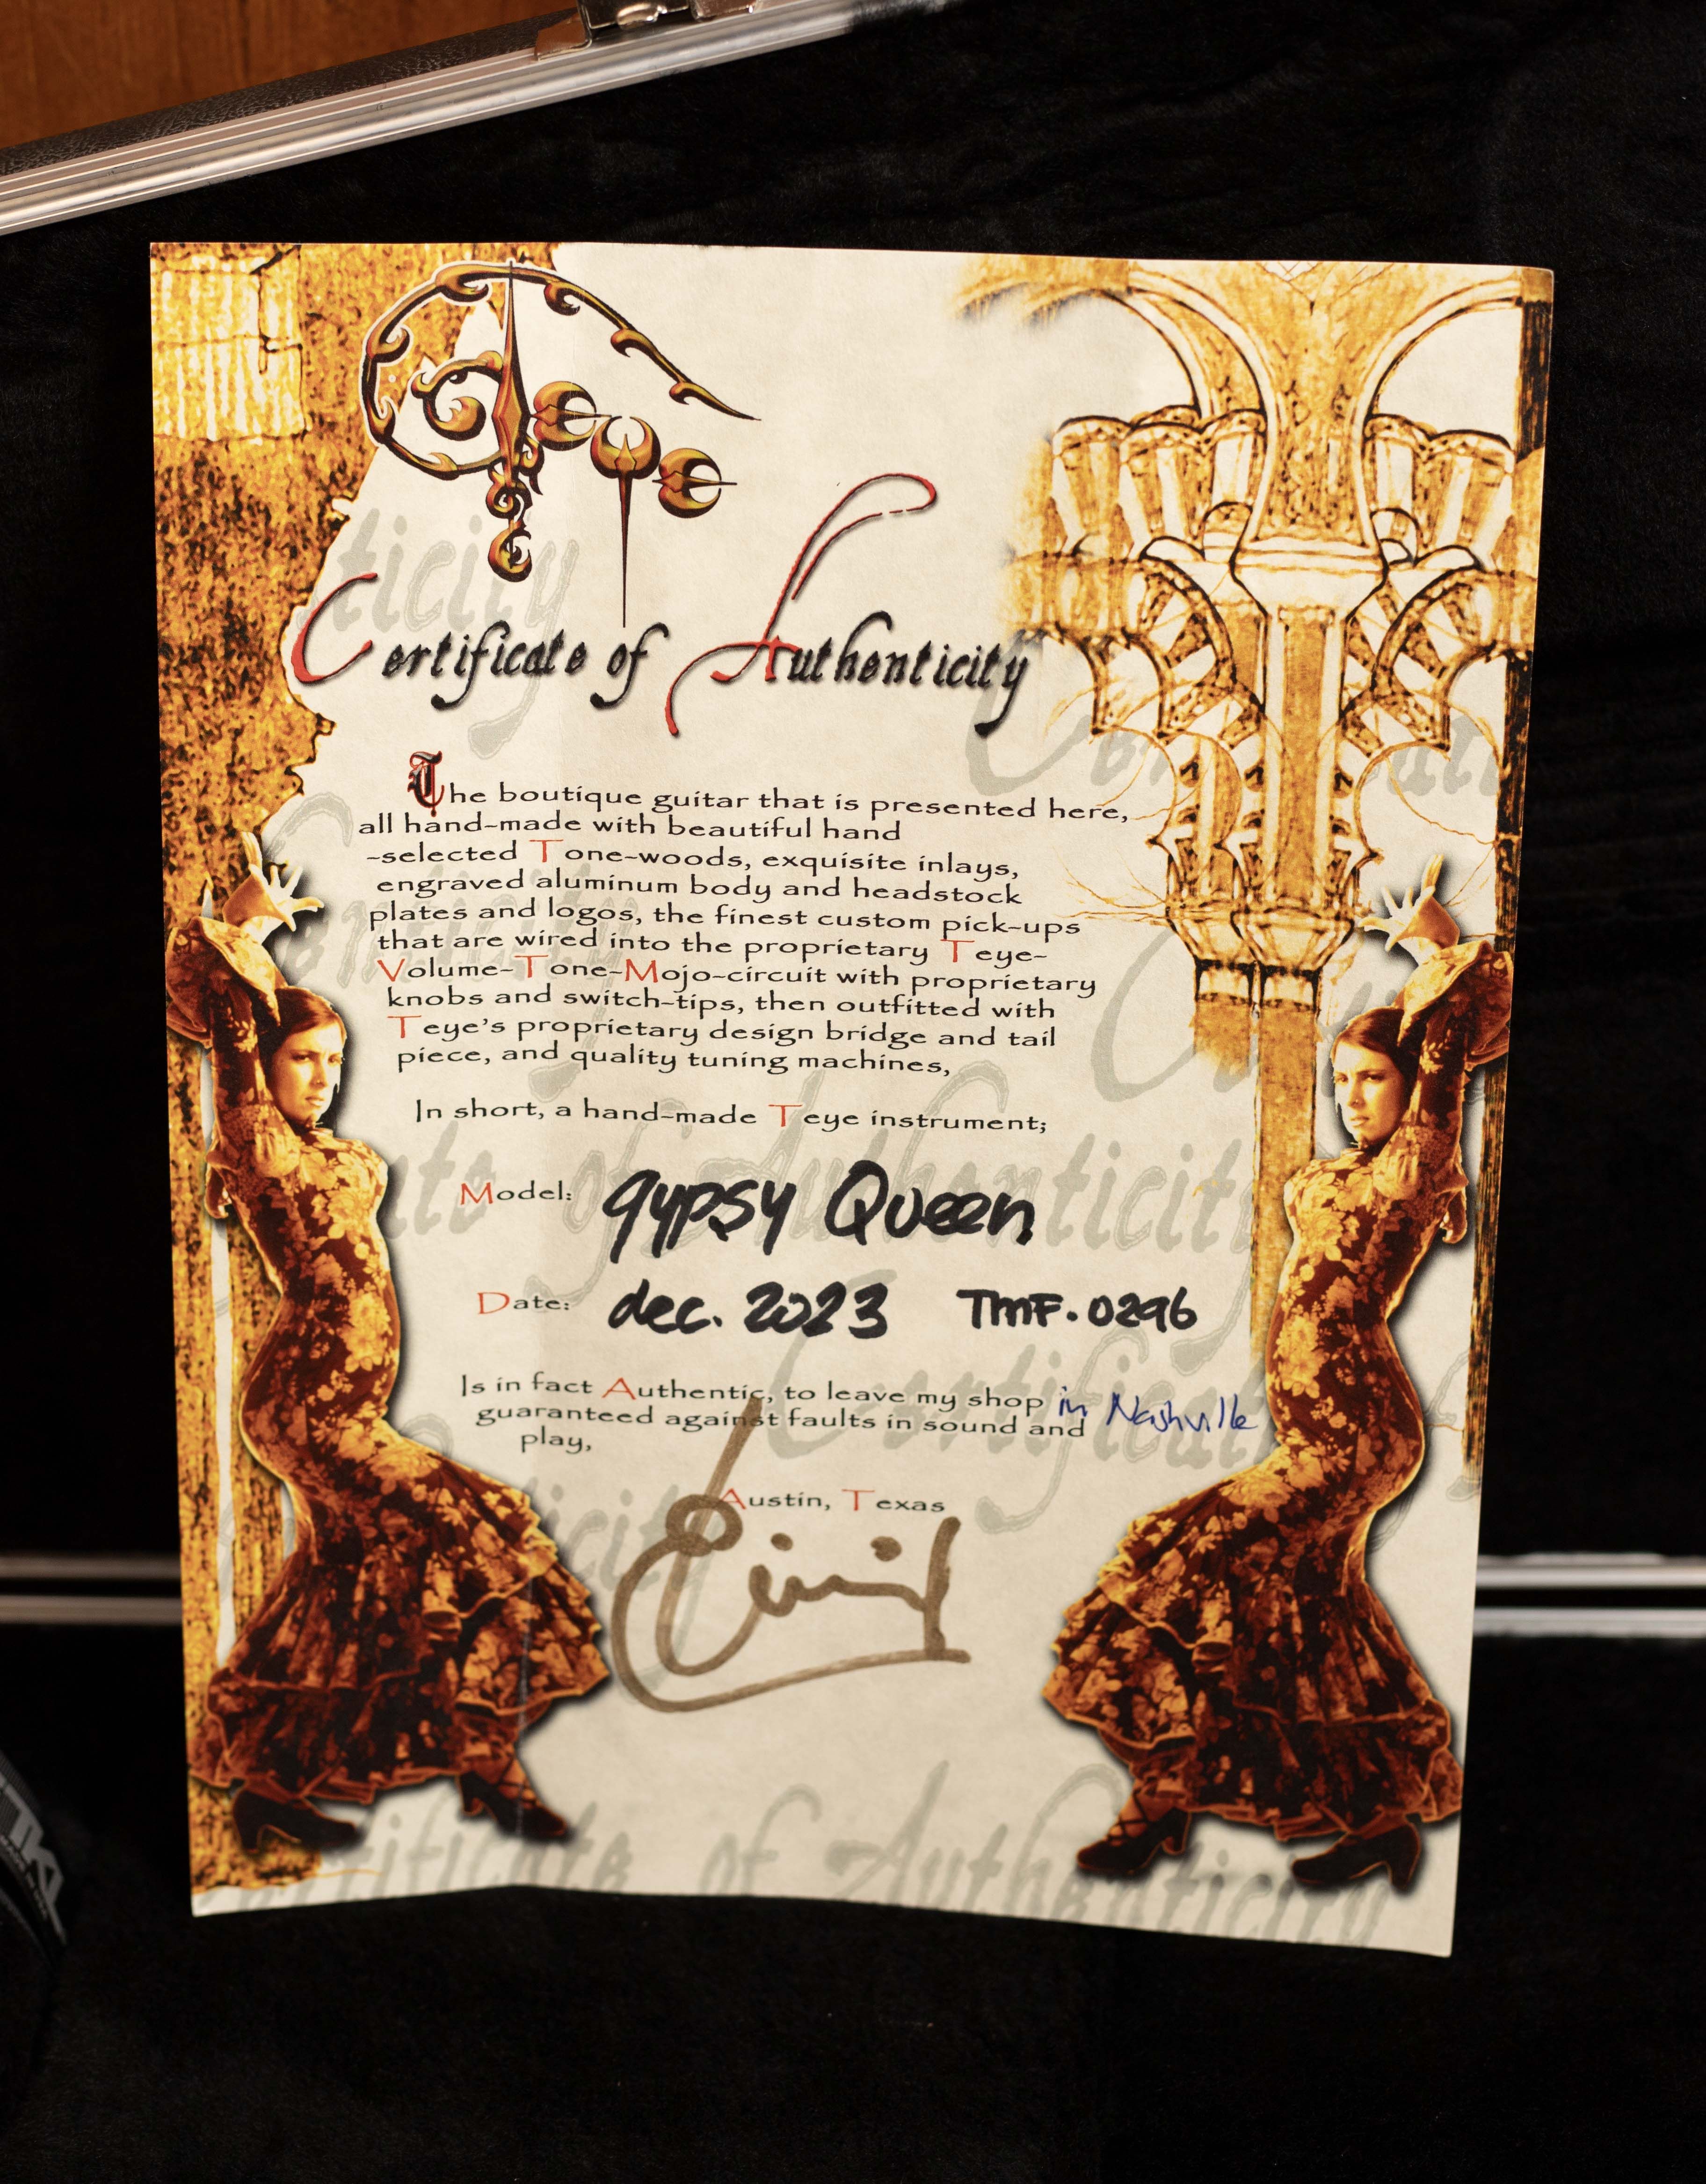 Teye
Certificate of Authenticity
The boutique guitar that is presented here,
all hand-made with beautiful hand
-selected Tone-woods, exquisite inlays,
engraved aluminum body and headstock
plates and logos, the finest custom pick-ups
that are wired into the proprietary Teye-
Volume-Tone-Mojo-circuit with proprietary
knobs and switch-tips, then outfitted with
Teye's proprietary design bridge and tail
piece, and quality tuning machines,
In short, a hand-made Teye instrument;
Model: gypsy Queen
Date: dec. 2023 TMF.0296
Is in fact Authentic, to leave my shop in Nashville
guaranteed against faults in sound and
play,
Austin, Texas